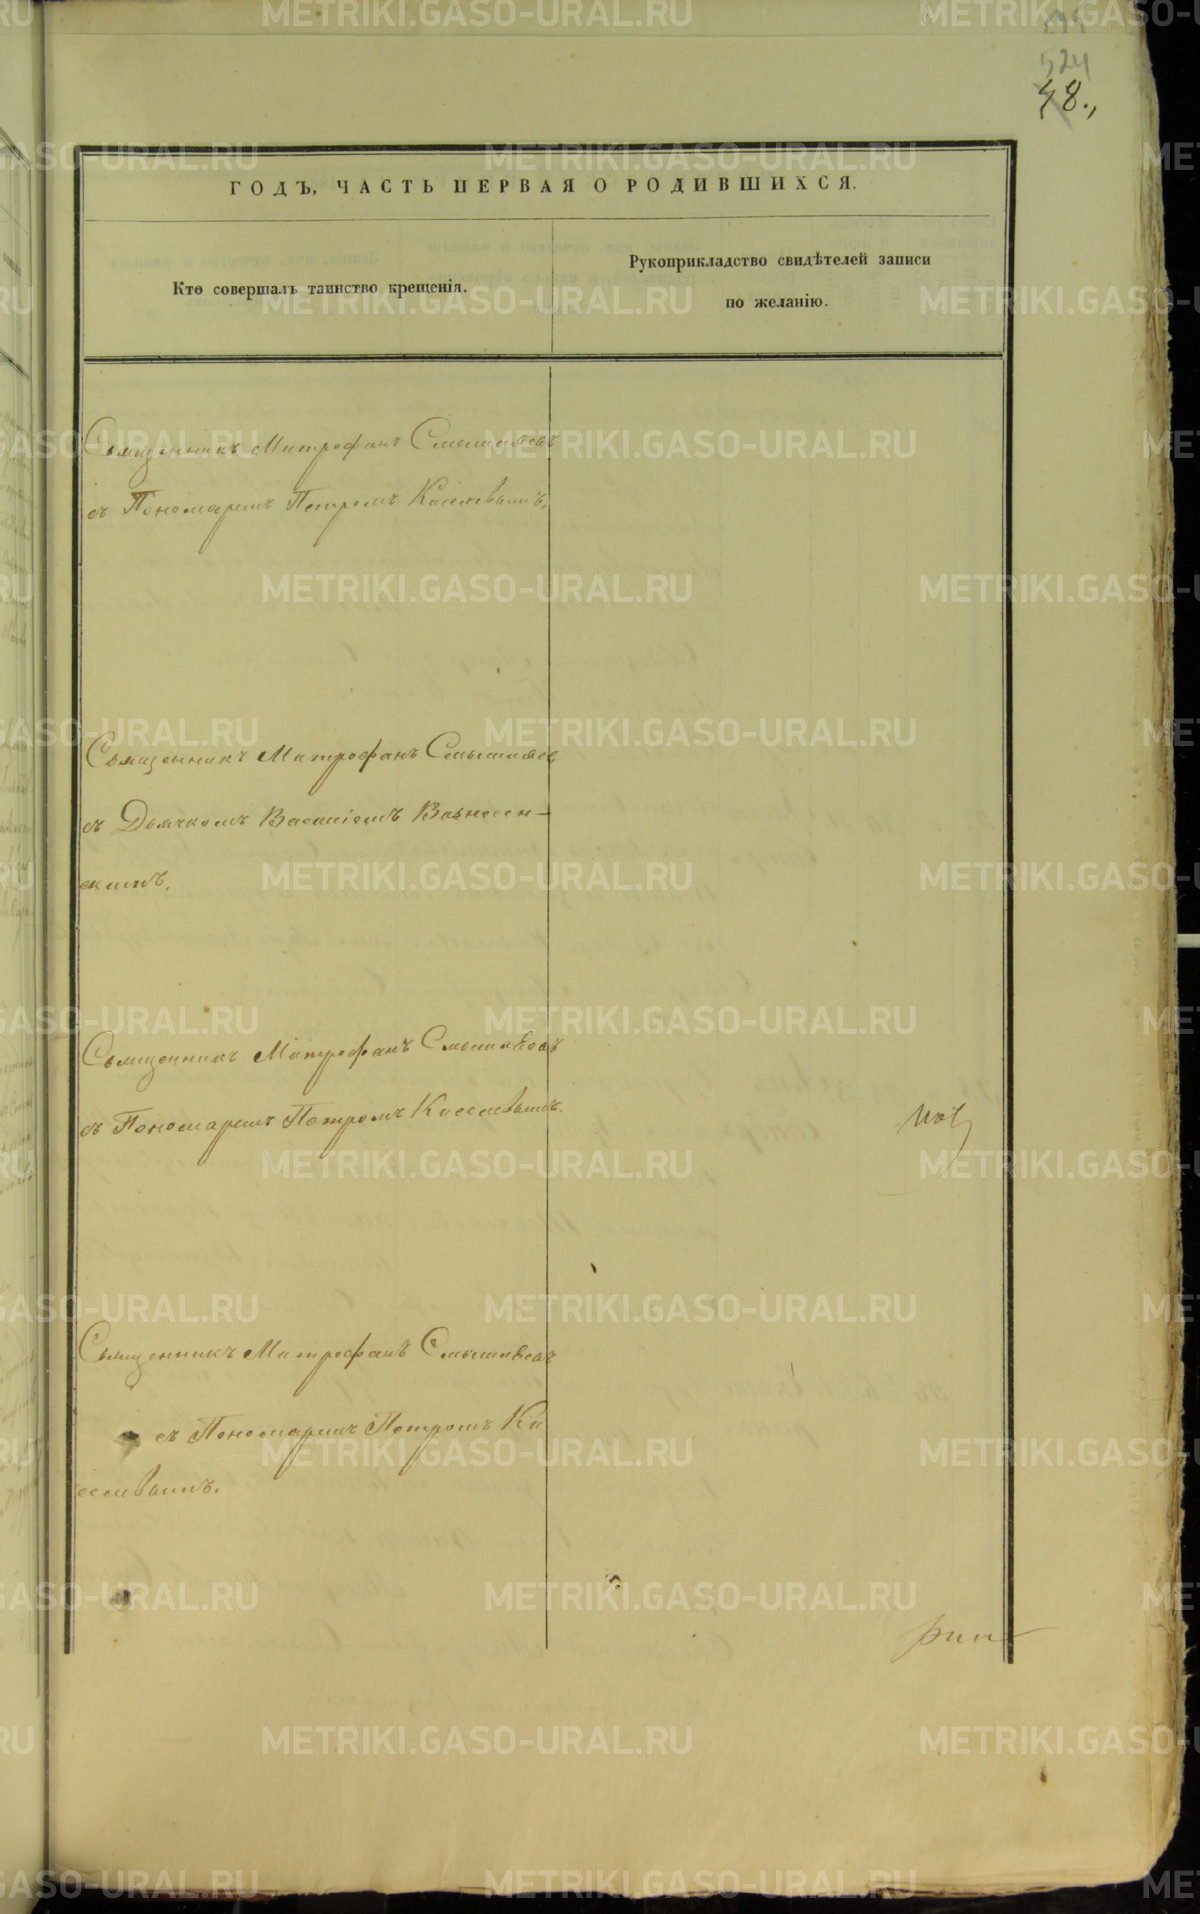 524
48.,
ГОДЪ, ЧАСТЬ ПЕРВАЯ О РОДИВШИХСЯ.
Кто совершалъ таинство крещенія.
Рукоприкладство свидѣтелей записи
по желанію.
Священникъ Митрофанъ Смышляевъ
съ Пономаремъ Петромъ Киселевымъ.
Священникъ Митрофанъ Смышляев
съ Дьячкомъ Василіемъ Вознесен-
скимъ.
Священникъ Митрофанъ Смышляевъ
съ Пономаремъ Петромъ Киселевымъ.
Священникъ Митрофанъ Смышляевъ
съ Пономаремъ Петромъ Ки
селевымъ.
METRIKI.GASO-URAL.RU